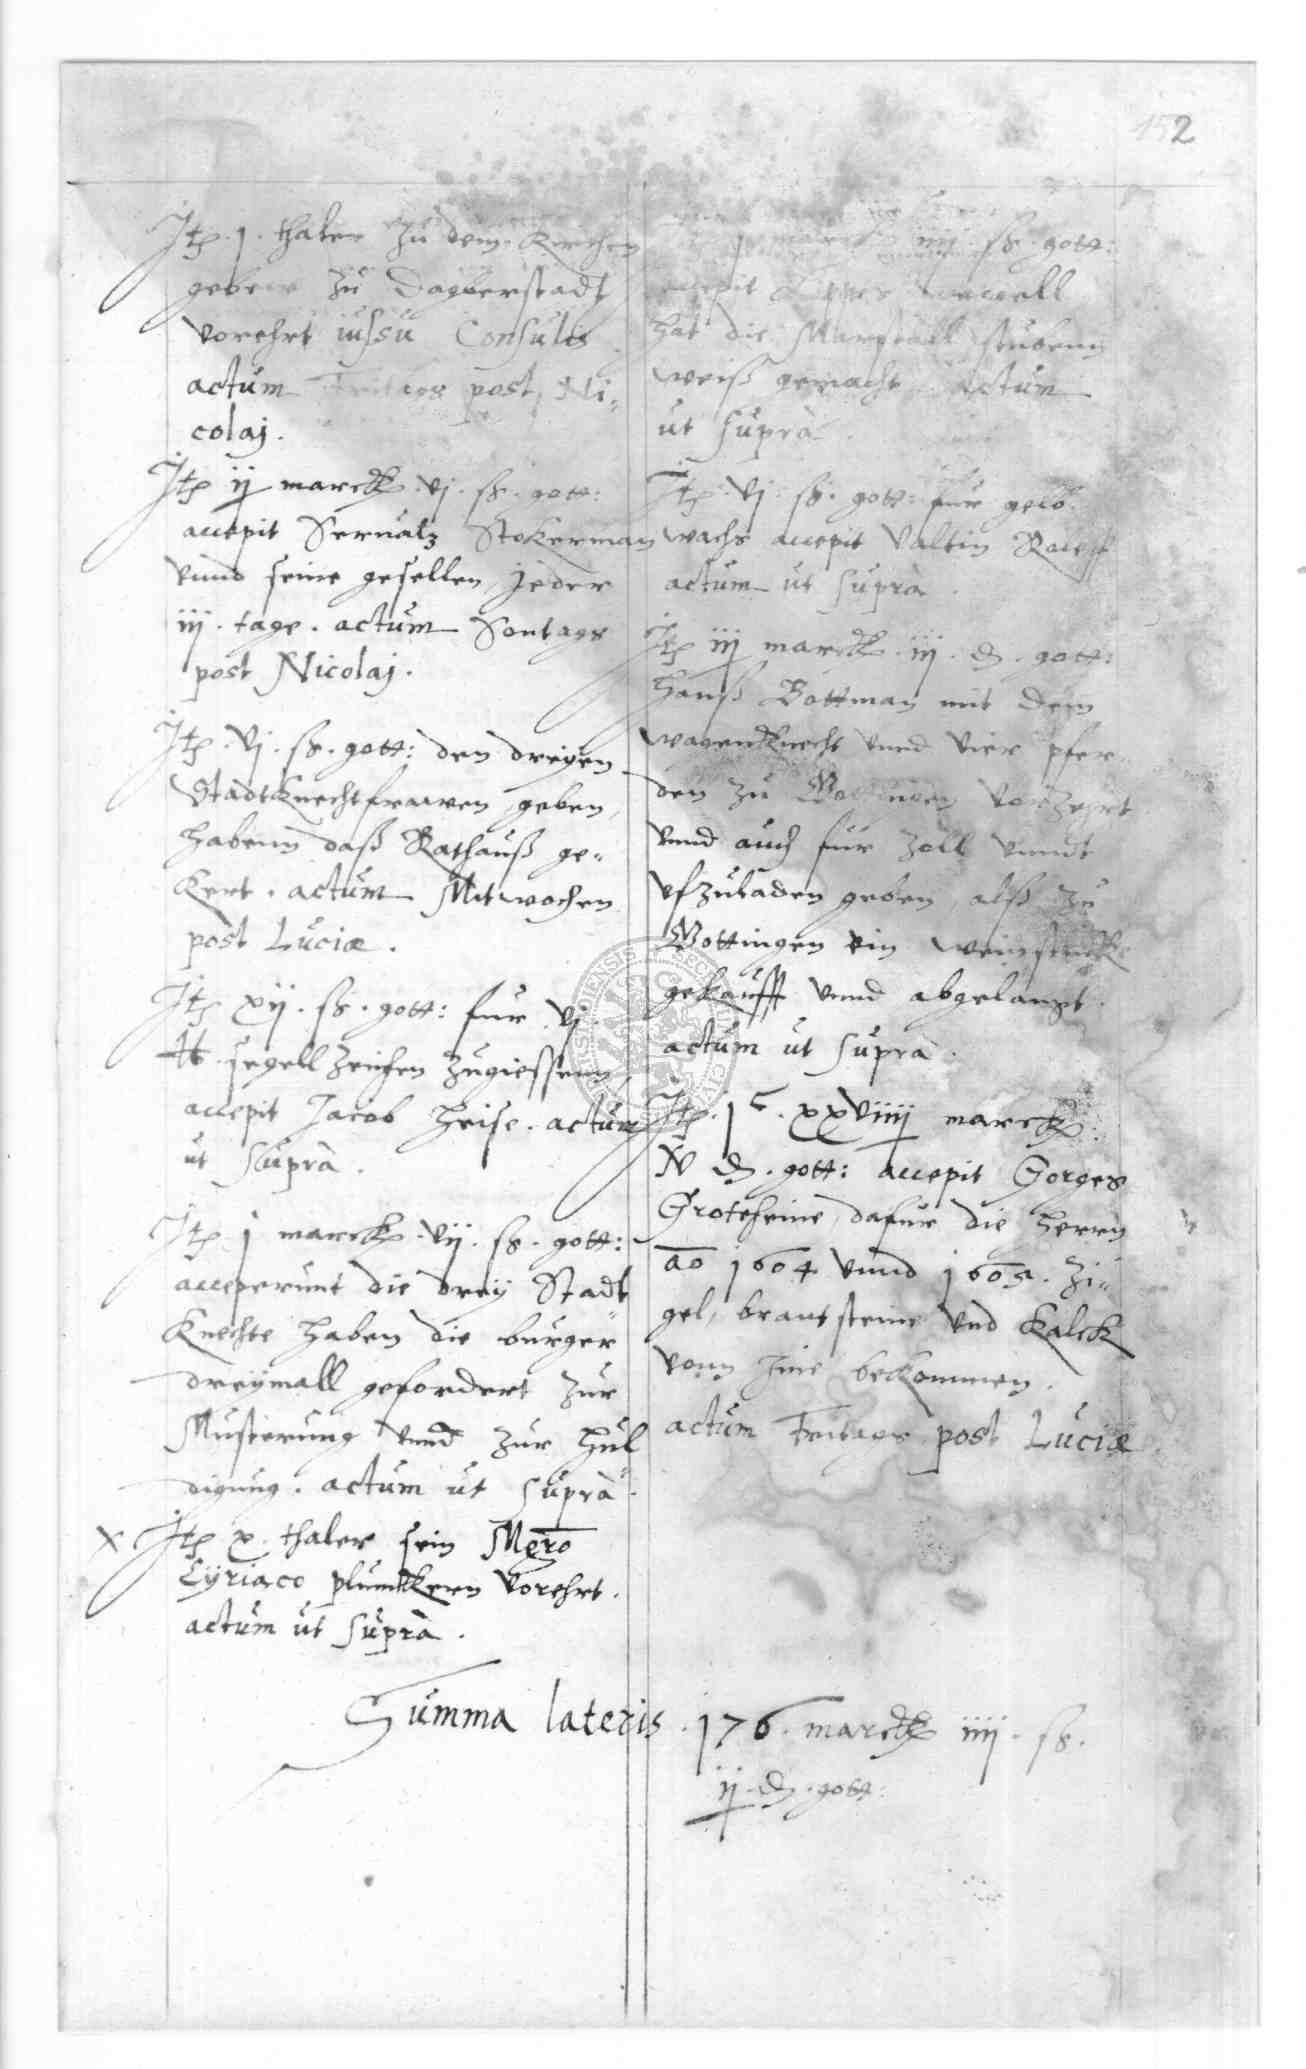 152
Jtem .1. thaler zu dem Kirchen
geben zu Dagberstadt
vorehrt iussu Consulis
actum Freitags post Ni„
colaj.
Jtem ij marck vj. ß. gott:
accepit Seruatz Stokerman
vnnd seine gesellen jeder
iij. tage. actum Sontags
post Nicolaj.
Jtem. vj. ß. gott: den dreyen
Stadtknechtfrawen geben,
habenn daß Rathauß ge„
kert. actum Mitwochen
post Luciæ.
Jtem xij. ß. gott: fur vj
℔. segell zeichen zugiessenn,
accepit Jacob Heise. actum
ut supra.
Jtem j marck vij. ß. gott:
acceperunt die drey Stadt
Knechte haben die burger
dreymall gefordert zur
Musterung vnnd zur Hul
digung. actum ut supra.
x Jtem x. thaler sein Mgro
Cyriaco plumekern vorehrt.
actum ut supra.
marck iiij ß. gott:
accepit
hat die Marstall stubenn
weiß gemacht actum
ut supra.
Jtem. vj. ß. gott: fur gelb
wachs accepit Valtin
actum ut supra.
Jtem iij marck. iij. d. gott:
Hanß Bottman mit dem
wagenknecht vnnd vier pfer„
den zu vorzehrt
vnnd auch fur zoll vnndt
vfzuladen geben, alß zu
Gottingen ein weinstucke
gekaufft vnnd abgelangt.
actum ut supra.
Jtem. jᶜ. xxviiij marck.
N d. gott: accepit Gorges
Grotheine, dafur die herrn
ao 1604 vnnd 1605. Zi„
gel, brantsteine vnd Kalck
vonn Jme bekommen.
actum Freitags post Luciæ
Summa lateris. 176. marck iiij. ß.
ij. d. gott: